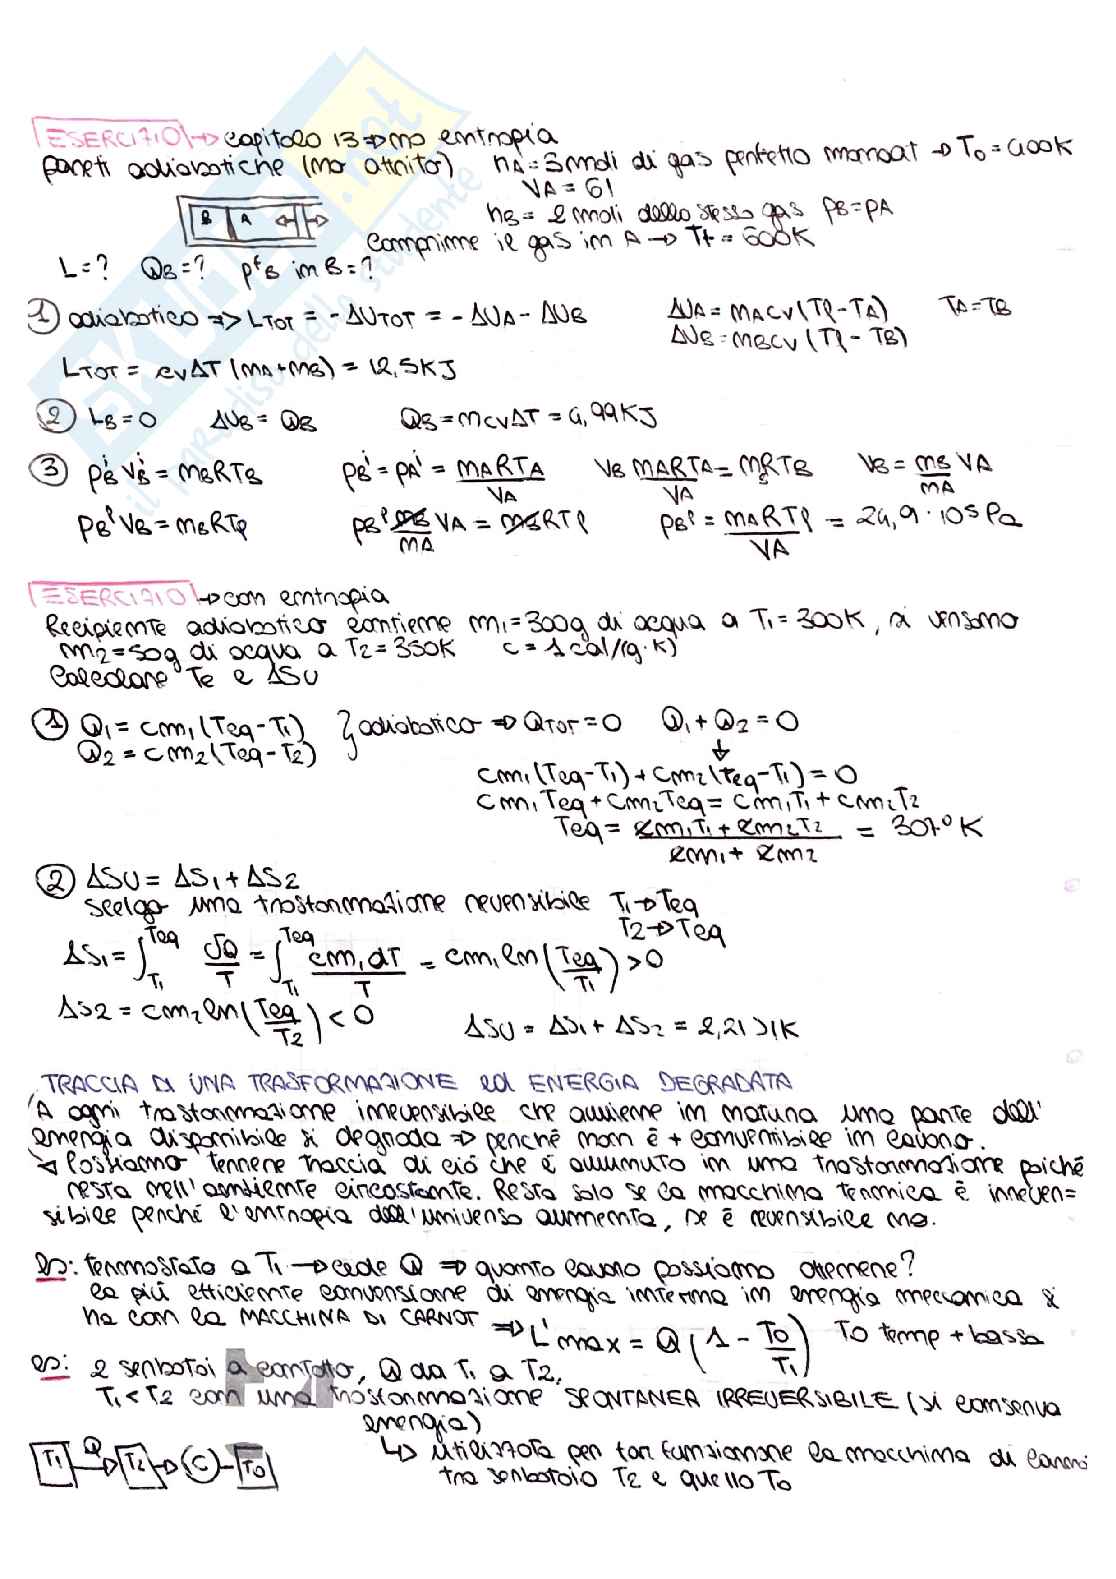 ESERCIZIO → capitolo 13 ⇒ no entropia
pareti adiabatiche (no attrito) nA = 3 moli di gas perfetto monoat → T0 = 400K
VA = 6l
B A
nB = 2 moli dello stesso gas pB = pA
Comprime il gas in A → Tf = 600K
L = ? QB = ? pfB in B = ?
1 adiabatico ⇒ LTOT = -ΔUTOT = -ΔUA - ΔUB ΔUA = nAcV(Tf - TA) TA = TB
ΔUB = nBcV(Tf - TB)
LTOT = cVΔT(nA+nB) = 12,5KJ
2 LB = 0 ΔUB = QB QB = ncVΔT = 4,99KJ
3 pBi VBi = nBRTB pBi = pAi = nARTA/VA VB nARTA/VA = nBRTB VB = nB/nA VA
pBf VB = nBRTf pBf nB/nA VA = nBRTf pBf = nARTf/VA = 24,9·10^5 Pa
ESERCIZIO → con entropia
Recipiente adiabatico contiene m1 = 300g di acqua a T1 = 300K, si versano
m2 = 50g di acqua a T2 = 350K c = 1 cal/(g·K)
Calcolare Te e ΔSU
1 Q1 = cm1(Teq - T1) } adiabatico ⇒ QTOT = 0 Q1 + Q2 = 0
Q2 = cm2(Teq - T2)
cm1(Teq - T1) + cm2(Teq - T1) = 0
cm1Teq + cm2Teq = cm1T1 + cm2T2
Teq = cm1T1 + cm2T2 / cm1 + cm2 = 307°K
2 ΔSU = ΔS1 + ΔS2
Scelgo una trasformazione reversibile T1 → Teq
T2 → Teq
ΔS1 = ∫T1^Teq δQ/T = ∫T1^Teq cm1dT/T = cm1 ln(Teq/T1) > 0
ΔS2 = cm2 ln(Teq/T2) < 0 ΔSU = ΔS1 + ΔS2 = 2,21 J/K
TRACCIA DI UNA TRASFORMAZIONE ed ENERGIA DEGRADATA
A ogni trasformazione irreversibile che avviene in natura una parte dell'
energia disponibile si degrada ⇒ perché non è + convertibile in lavoro.
→ Possiamo tenere traccia di ciò che è avvenuto in una trasformazione poiché
resta nell'ambiente circostante. Resta solo se la macchina termica è irrever=
sibile perché l'entropia dell'universo aumenta, se è reversibile no.
es: termostato a T1 → cede Q ⇒ quanto lavoro possiamo ottenere?
la più efficiente conversione di energia interna in energia meccanica si
ha con la MACCHINA DI CARNOT ⇒ L'max = Q(1 - T0/T1) T0 temp + bassa
es: 2 serbatoi a contatto, Q da T1 a T2,
T1 < T2 con una trasformazione SPONTANEA IRREVERSIBILE (si conserva
energia)
↳ utilizzata per far funzionare la macchina di Carnot
tra serbatoio T2 e quello T0
T1 Q → T2 → C - T0
skuola.net
il paradiso dello studente